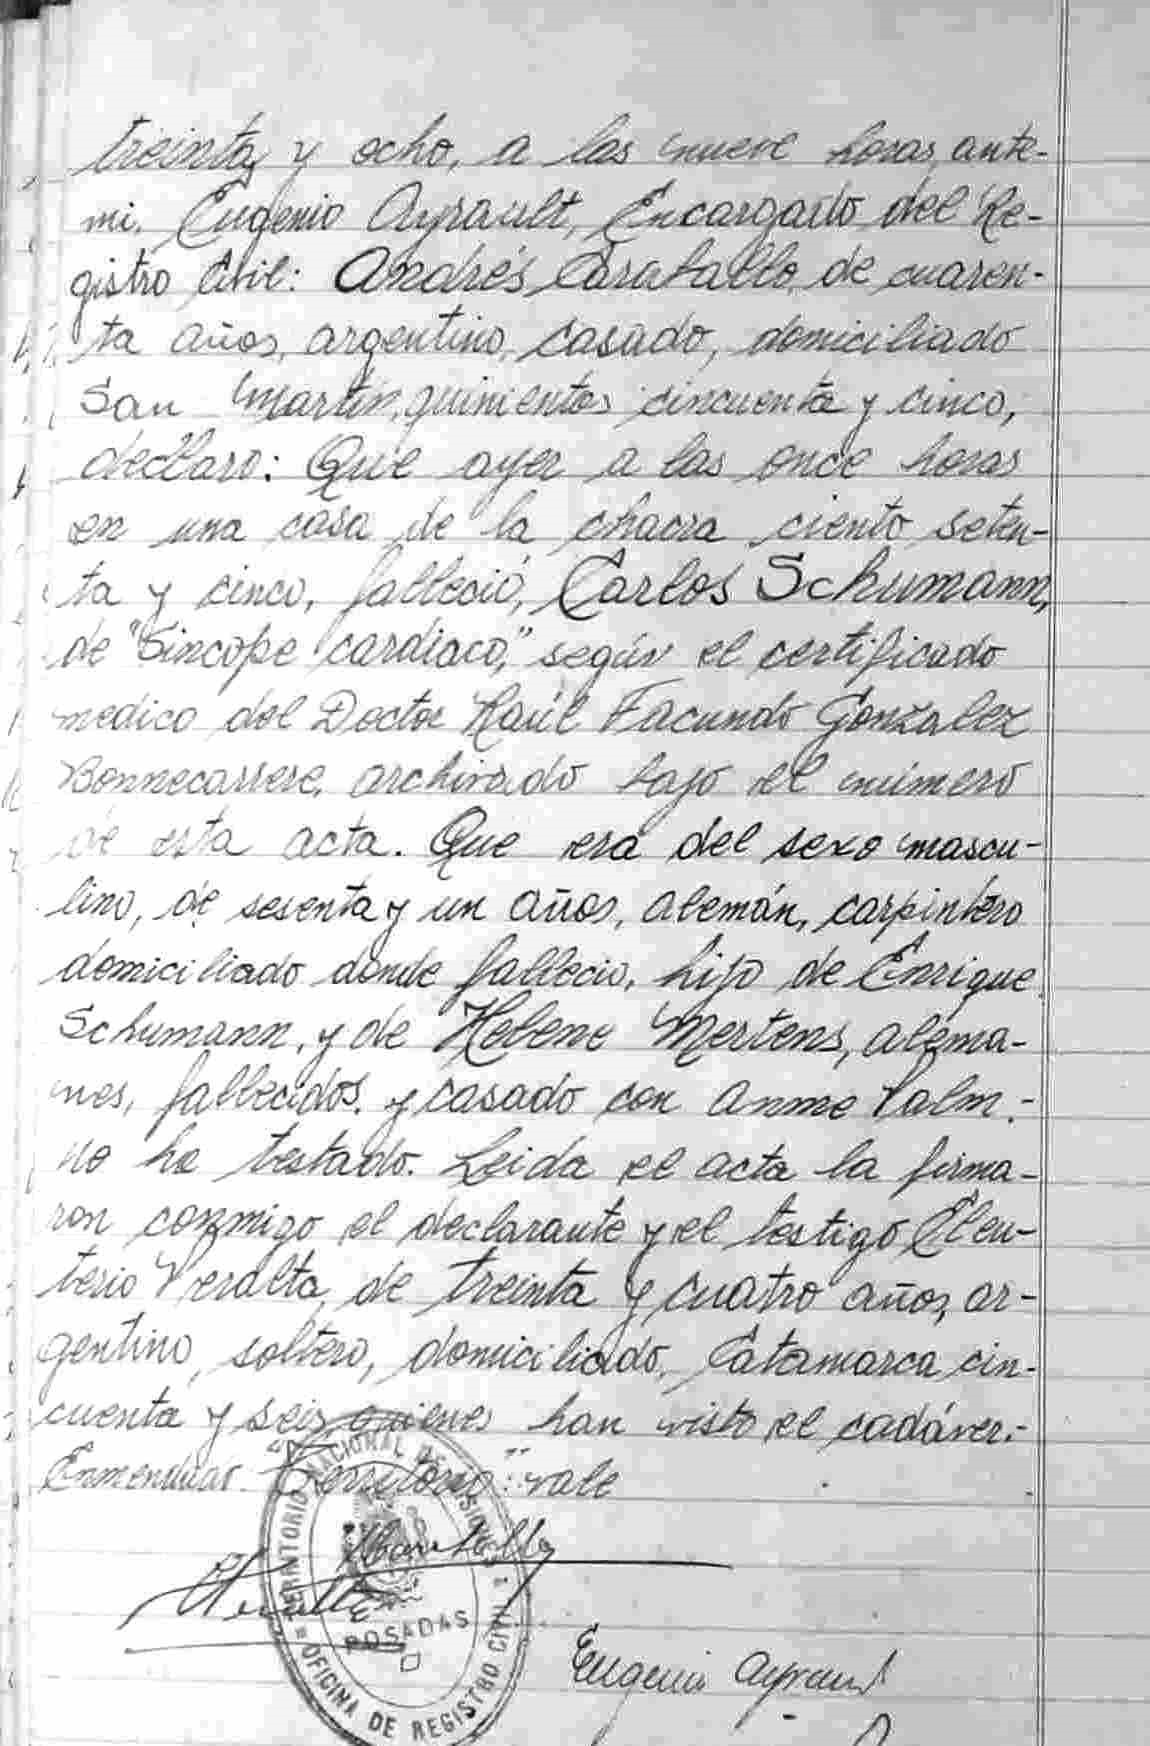 treinta y ocho, a las nueve horas, ante-
mi. Eugenio Ayrault, Encargado del Re-
gistro Civil: Andrés Caraballo, de cuaren-
ta años, argentino, casado, domiciliado
San Martin, quinientos cincuenta y cinco,
declaro: Que ayer a las once horas
en una casa de la chacra ciento seten-
ta y cinco, falleció, Carlos Schumann,
de "Sincope cardiaco," según el certificado
medico del Doctor Raúl Facundo Gonzalez
Bonnecarrere, archivado bajo el número
de esta acta. Que era del sexo mascu-
lino, de sesenta y un años, alemán, carpintero
domiciliado donde fallecio, hijo de Enrique
Schumann, y de Helene Mertens, alema-
nes, fallecidos. y casado con Anme Palm.-
no ha testado. Leida el acta la firma-
ron conmigo el declarante y el testigo Eleu-
terio Peralta, de treinta y cuatro años, ar-
gentino, soltero, domiciliado, Catamarca cin-
cuenta y seis quienes han visto el cadáver.-
Enmendado "Territorio": vale
TERRITORIO NACIONAL DE MISIONES
POSADAS
OFICINA DE REGISTRO CIVIL
Eugenio Ayrault